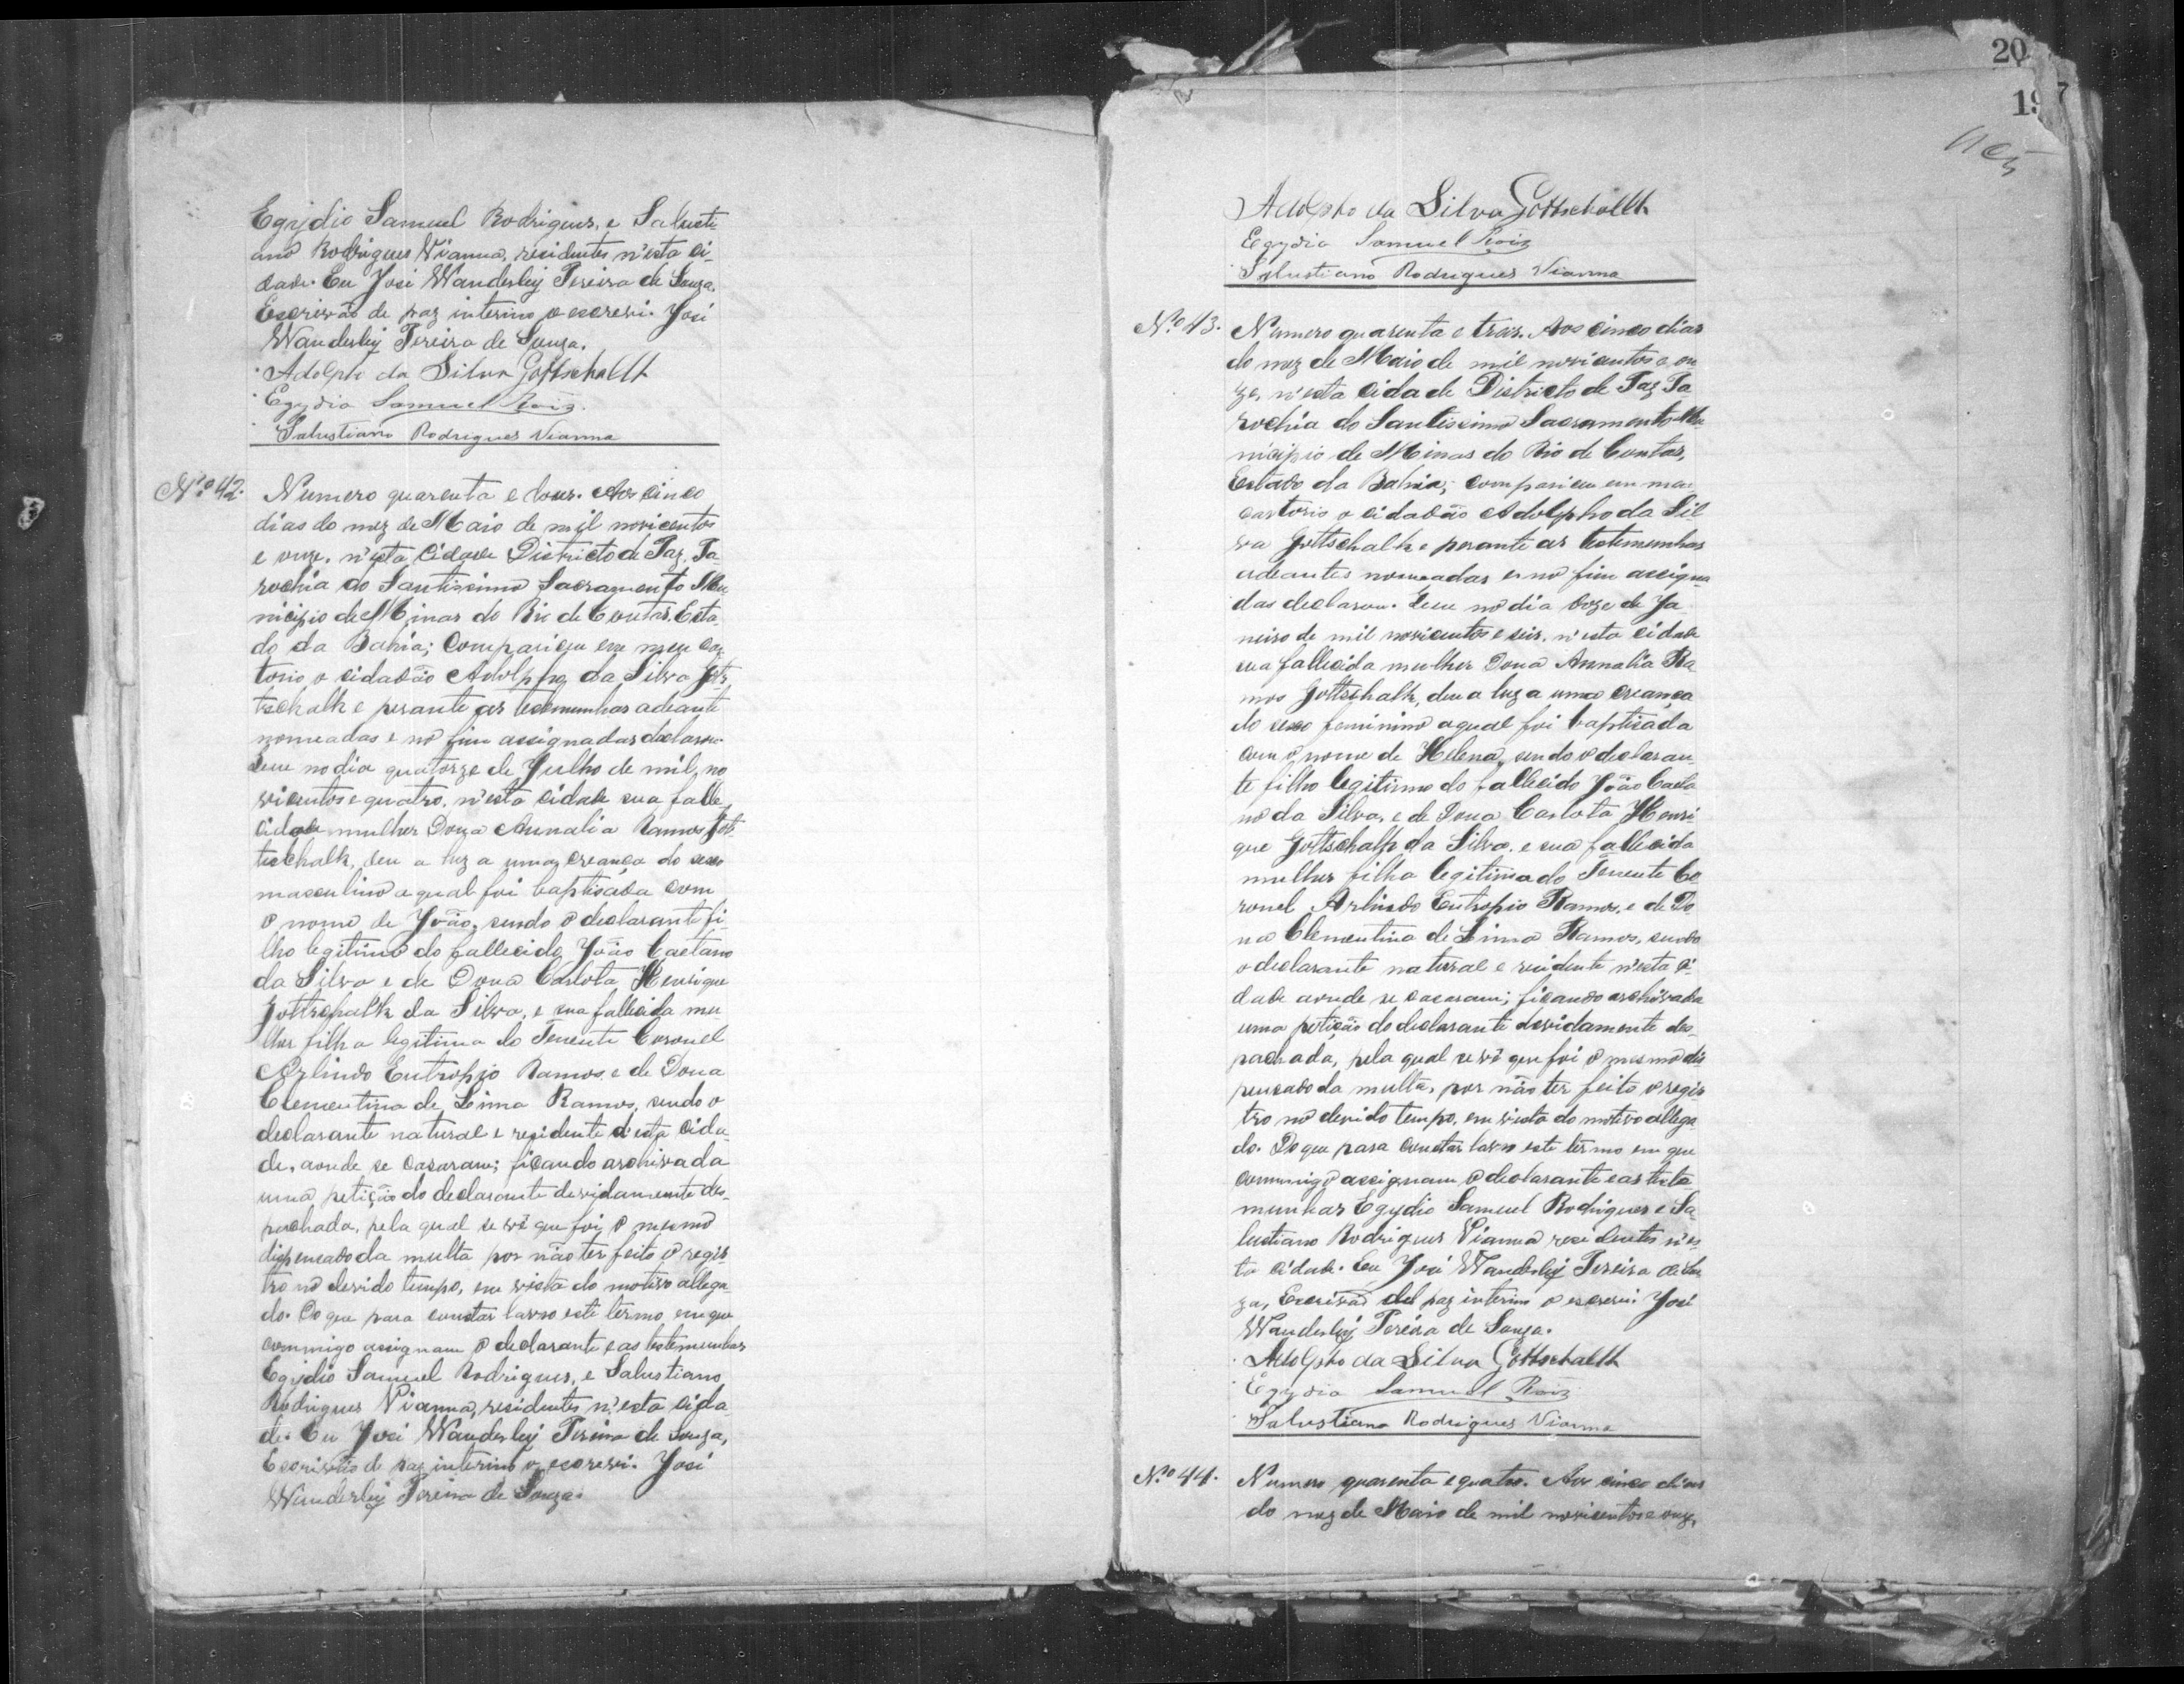 Egydio Samuel Rodrigues, e Salusti
ano Rodrigues Vianna, residentes n'esta ci-
dade. Eu José Wanderley Pereira de Souza,
Escrivão de paz interino o escrevi. José
Wanderley Pereira de Souza.
Adolpho da Silva Gottschalk
Egydio Samuel Roiz
Salustiano Rodrigues Vianna
Nº 42. Numero quarenta e dous. Aos cinco
dias do mez de Maio de mil novicentos
e onze, n'esta Cidade Districto de Paz, Pa-
rochia do Santissimo Sacramento Mu
nicipio de Minas do Rio de Contas, Esta-
do da Bahia; Compariceu em meu car
torio o cidadão Adolpho da Silva Got-
tschalk e perante as testemunhas adeante
nomeadas e no fim assignadas declarou:
Que no dia quatorze de Julho de mil no
vicentos e quatro, n'esta cidade sua falle
cida mulher Dona Annalia Ramos Got-
tschalk, deu a luz a uma creança do sexo
masculino a qual foi baptisada com
o nome de João, sendo o declarante fi-
lho legitimo do fallecido João Caetano
da Silva e de Dona Carlota Henrique
Gottschalk da Silva, e sua fallecida mu-
lher filha legitima do Tenente Coronel
Arlindo Eutropio Ramos, e de Dona
Clementina de Lima Ramos, sendo o
declarante natural e residente n'esta cida-
de, aonde se casaram; ficando archivada
uma petição do declarante devidamente des-
pachada, pela qual se vê que foi o mesmo
dispensado da multa por não ter feito o regis
tro no devido tempo, em vista do motivo allega
do. Do que para constar lavro este termo, em que
commigo assignam o declarante e as testemunhas
Egydio Samuel Rodrigues, e Salustiano
Rodrigues Vianna, residentes n'esta cida
de. Eu José Wanderley Pereira de Souza,
Escrivão de paz interino o escrevi. José
Wanderley Pereira de Souza.
20
197
Adolpho da Silva Gottschalk
Egydio Samuel Roiz
Salustiano Rodrigues Vianna
Nº 43. Numero quarenta e treis. Aos cinco dias
do mez de Maio de mil novicentos e on
ze, n'esta cidade Districto de Paz, Pa
rochia do Santissimo Sacramento Mu
nicipio de Minas do Rio de Contas,
Estado da Bahia; compariceu em meu
cartorio o cidadão Adolpho da Sil
va Gottschalk e perante as testemunhas
adeantes nomeadas e no fim assigna
das declarou. Que no dia doze de Ja
neiro de mil novicentos e seis, n'esta cidade
sua fallecida mulher Dona Annalia Ra
mos Gottschalk, deu a luz a uma creança
do sexo feminino a qual foi baptisada
com o nome de Helena, sendo o declaran-
te filho legitimo do fallecido João Caeta
no da Silva, e de Dona Carlota Henri
que Gottschalk da Silva, e sua fallecida
mulher filha legitima do Tenente Co
ronel Arlindo Eutropio Ramos, e de Do
na Clementina de Lima Ramos, sendo
o declarante natural e residente n'esta ci
dade aonde se casaram; ficando archivada
uma petição do declarante devidamente des-
pachada, pela qual se vê que foi o mesmo dis
pensado da multa, por não ter feito o regis
tro no devido tempo, em vista do motivo allega
do. Do que para constar lavro este termo em que
commigo assignam o declarante e as teste
munhas Egydio Samuel Rodrigues e Sa
lustiano Rodrigues Vianna residentes n'es
ta cidade. Eu José Wanderley Pereira de Sou
za, Escrivão de paz interino o escrevi. José
Wanderley Pereira de Souza.
Adolpho da Silva Gottschalk
Egydio Samuel Roiz
Salustiano Rodrigues Vianna
Nº 44. Numero quarenta e quatro. Aos cinco dias
do mez de Maio de mil novicentos e onze,